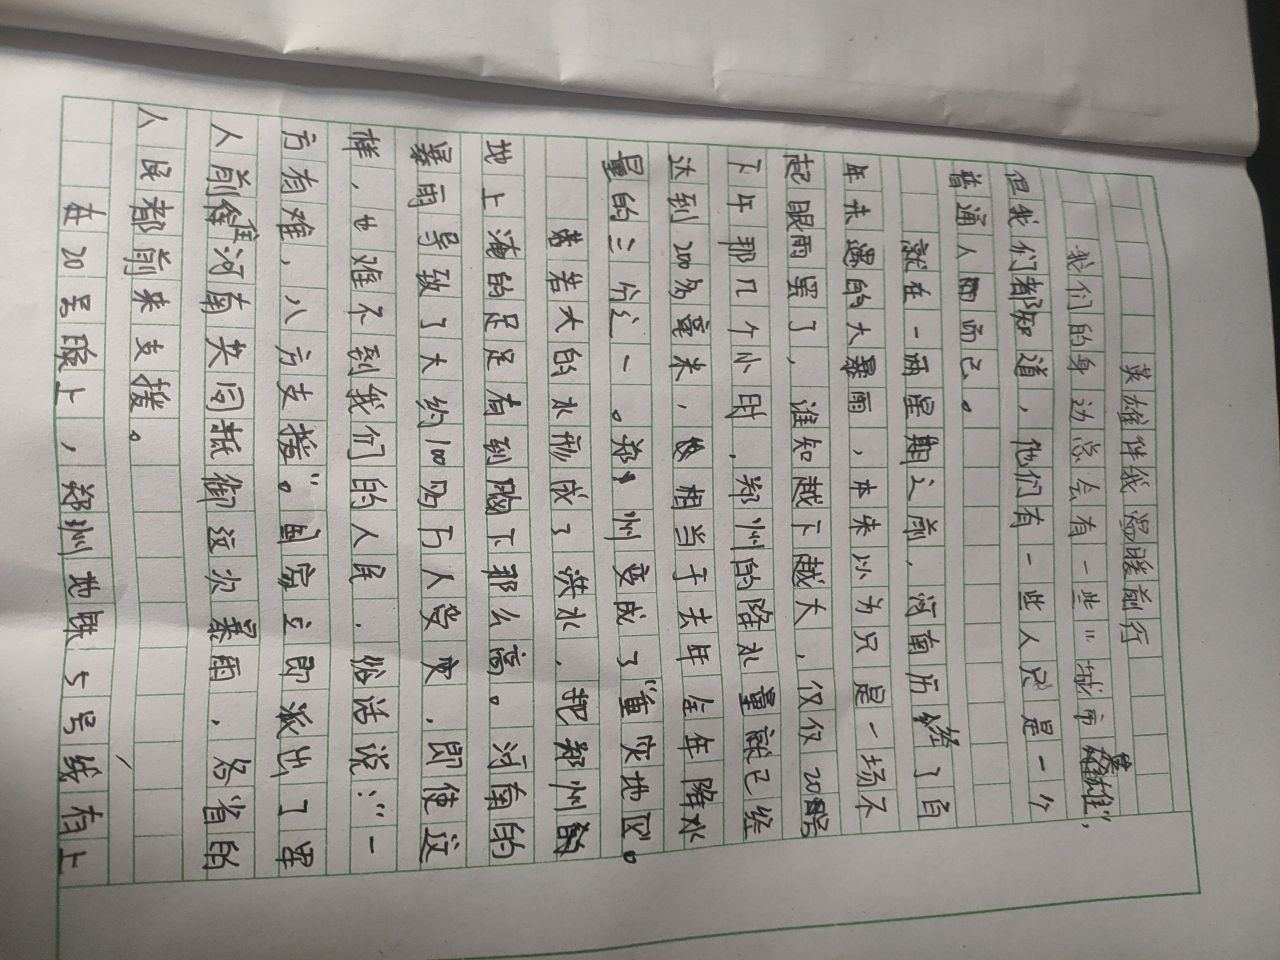 英雄伴我温暖前行
我们的身边总会有一些"城市英雄",
但我们都知道,他们有一些人只是一个
普通人而已。
就在一两星期之前,河南历经了百
年未遇的大暴雨,本来以为只是一场不
起眼雨罢了,谁知越下越大,仅仅20号
下午那几个小时,郑州的降水量就已经
达到200多毫米,相当于去年全年降水
量的三分之一。郑州变成了"重灾地区"。
若大的水形成了洪水,把郑州的
地上淹的足足有到腿下那么高。河南的
暴雨导致了大约100万人受灾,即使这
样,也难不到我们的人民,俗话说:"一
方有难,八方支援"。国家立即派出了军
人前往河南共同抵御这次暴雨,各省的
人民都前来支援。
在20号晚上,郑州地铁5号线有上